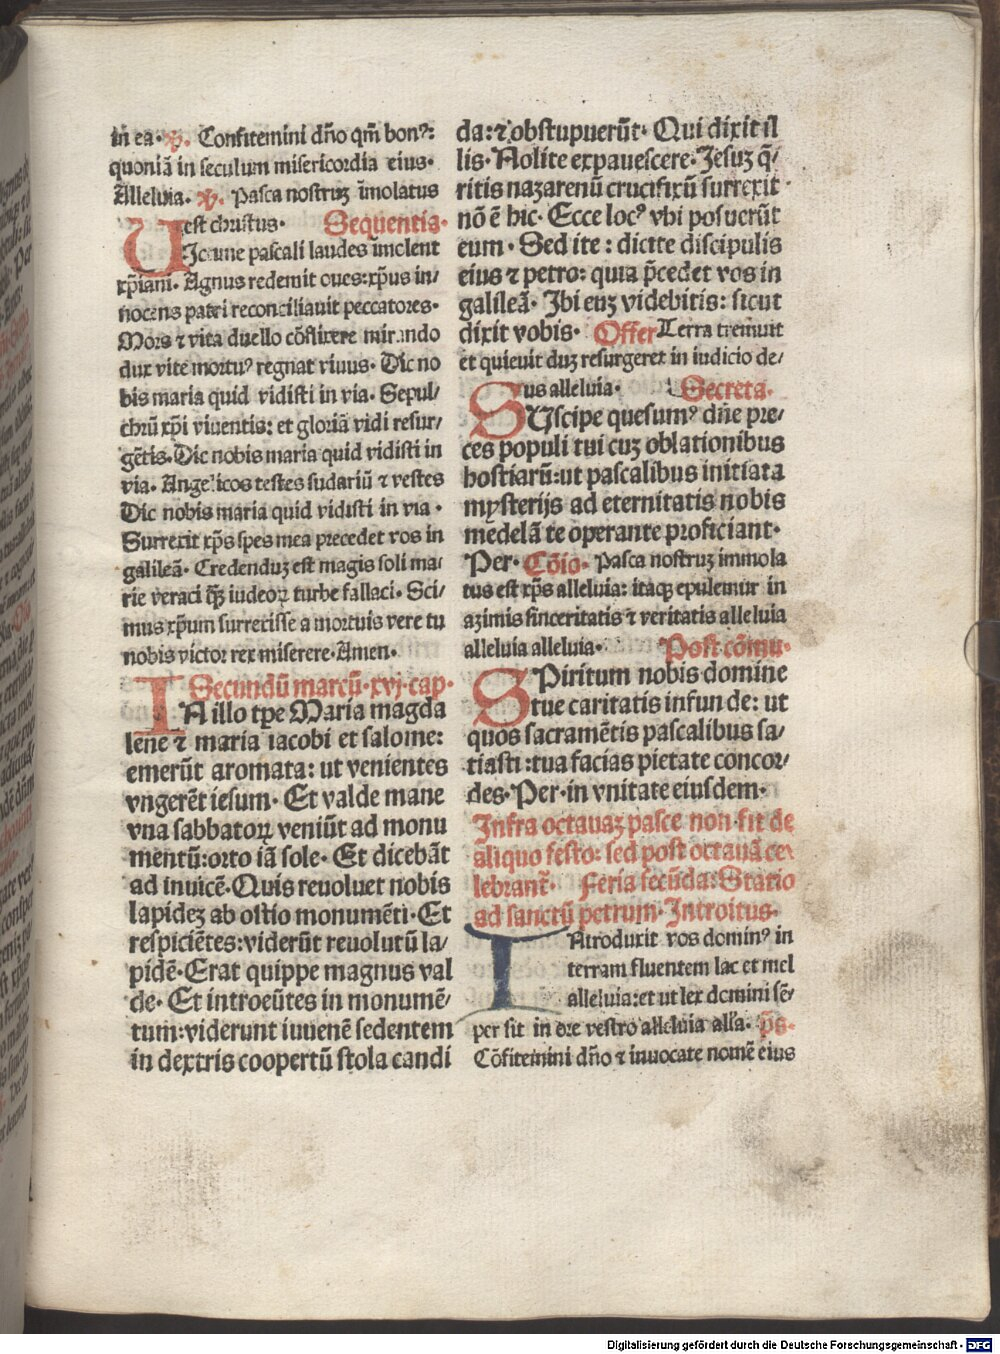 in ea. ℣. Confitemini dño qm̃ bonꝰ:
quoniã in seculum misericordia eius.
Alleluia. ℣. Pasca nostruȝ ĩmolatus
est christus. Sequentia.
UIctime pascali laudes ĩmolent
xp̃iani. Agnus redemit oues: xp̃us in/
nocens patri reconciliauit peccatores.
Mors ⁊ vita duello cõflixere mirando
dux vite mortuꝰ regnat viuus. Dic no
bis maria quid vidisti in via. Sepul/
chrũ xp̃i viuentis: et gloriã vidi resur/
gẽtis. Dic nobis maria quid vidisti in
via. Angelicos testes sudariũ ⁊ vestes
Dic nobis maria quid vidisti in via.
Surrexit xp̃s spes mea precedet vos in
galileã. Credenduȝ est magis soli ma/
rie veraci q̃ȝ iudeoꝝ turbe fallaci. Sci/
mus xp̃um surrexisse a mortuis vere tu
nobis victor rex miserere. Amen.
Secundũ marcũ. xvj. cap.
IN illo tp̃e Maria magda
lene ⁊ maria iacobi et salome:
emerũt aromata: ut venientes
vngerẽt iesum. Et valde mane
vna sabbatoꝝ veniũt ad monu
mentũ: orto iã sole. Et dicebãt
ad inuicẽ. Quis reuoluet nobis
lapideȝ ab ostio monumẽti. Et
respiciẽtes: viderũt reuolutũ la/
pidẽ. Erat quippe magnus val
de. Et introeũtes in monumẽ/
tum: viderunt iuuenẽ sedentem
in dextris coopertũ stola candi
da: ⁊ obstupuerũt. Qui dixit il
lis. Nolite expauescere. Jesuȝ q̃/
ritis nazarenũ crucifixũ surrexit.
nõ ẽ hic. Ecce locꝰ vbi posuerũt
eum. Sed ite: dicite discipulis
eius ⁊ petro: quia p̃cedet vos in
galileã. Jbi euȝ videbitis: sicut
dixit vobis. Offer Terra tremuit
et quieuit duȝ resurgeret in iudicio de/
us alleluia. Secreta.
SUscipe quesumꝰ dñe pre/
ces populi tui cuȝ oblationibus
hostiarũ: ut pascalibus initiata
mysterijs ad eternitatis nobis
medelã te operante proficiant.
Per. Cõio. Pasca nostruȝ immola
tus est xp̃s alleluia: itaqȝ epulemur in
azimis sinceritatis ⁊ veritatis alleluia
alleluia alleluia. Post cõmu.
SPiritum nobis domine
tue caritatis infunde: ut
quos sacramẽtis pascalibus sa/
tiasti: tua facias pietate concor/
des. Per. in vnitate eiusdem.
Infra octauaȝ pasce non fit de
aliquo festo: sed post octauã ce
lebrant̃. Feria secũda: Statio
ad sanctũ petrum. Introitus.
INtroduxit vos dominꝰ in
terram fluentem lac et mel
alleluia: et ut lex domini sẽ/
per sit in ore vestro alleluia all'a. p̃s.
Cõfitemini dño ⁊ inuocate nomẽ eius
Digitalisierung gefördert durch die Deutsche Forschungsgemeinschaft - DFG